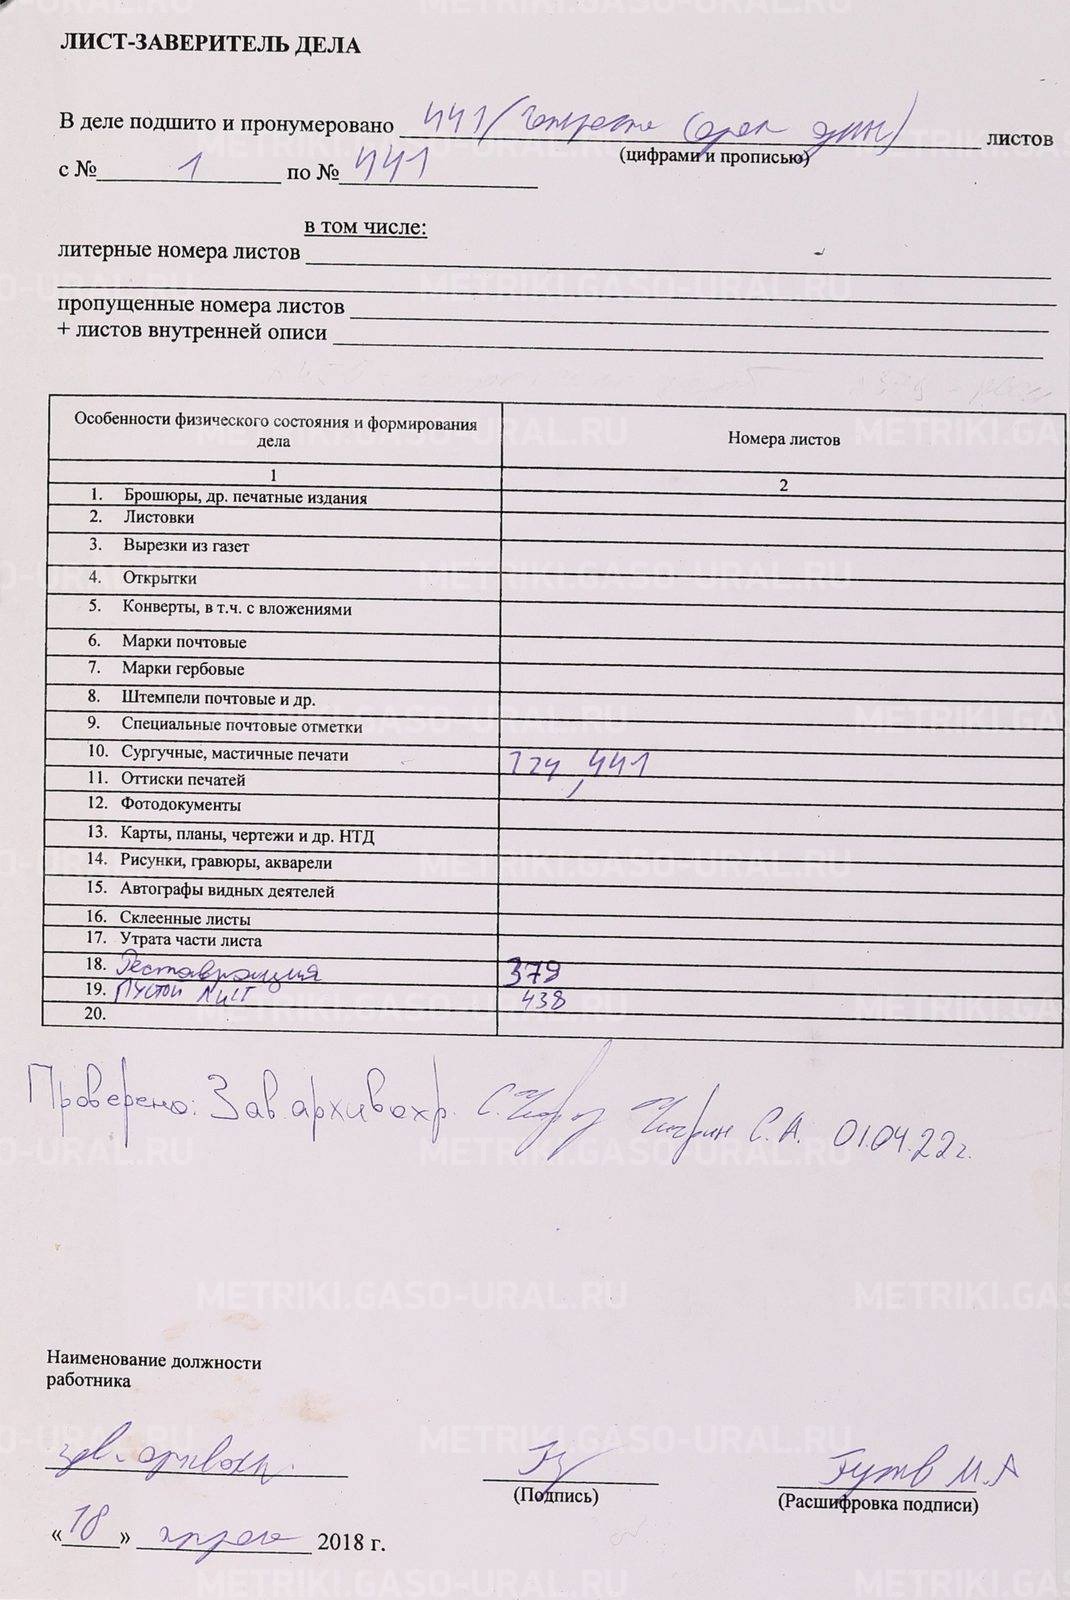 ЛИСТ-ЗАВЕРИТЕЛЬ ДЕЛА
В деле подшито и пронумеровано 441 (четыреста сорок один) листов
(цифрами и прописью)
с № 1 по № 441
в том числе:
литерные номера листов
пропущенные номера листов
+ листов внутренней описи
Особенности физического состояния и формирования дела Номера листов
1 2
1. Брошюры, др. печатные издания
2. Листовки
3. Вырезки из газет
4. Открытки
5. Конверты, в т.ч. с вложениями
6. Марки почтовые
7. Марки гербовые
8. Штемпели почтовые и др.
9. Специальные почтовые отметки
10. Сургучные, мастичные печати 224, 441
11. Оттиски печатей
12. Фотодокументы
13. Карты, планы, чертежи и др. НТД
14. Рисунки, гравюры, акварели
15. Автографы видных деятелей
16. Склеенные листы
17. Утрата части листа
18. Реставрация 379
19. Пустой лист 438
20.
Проверено: Зав. архивохр. С.А. 01.04.22г.
Наименование должности
работника
зав. архивохр.
(Подпись) М.А
(Расшифровка подписи)
«18» апреля 2018 г.
METRIKI.GASO-URAL.RU